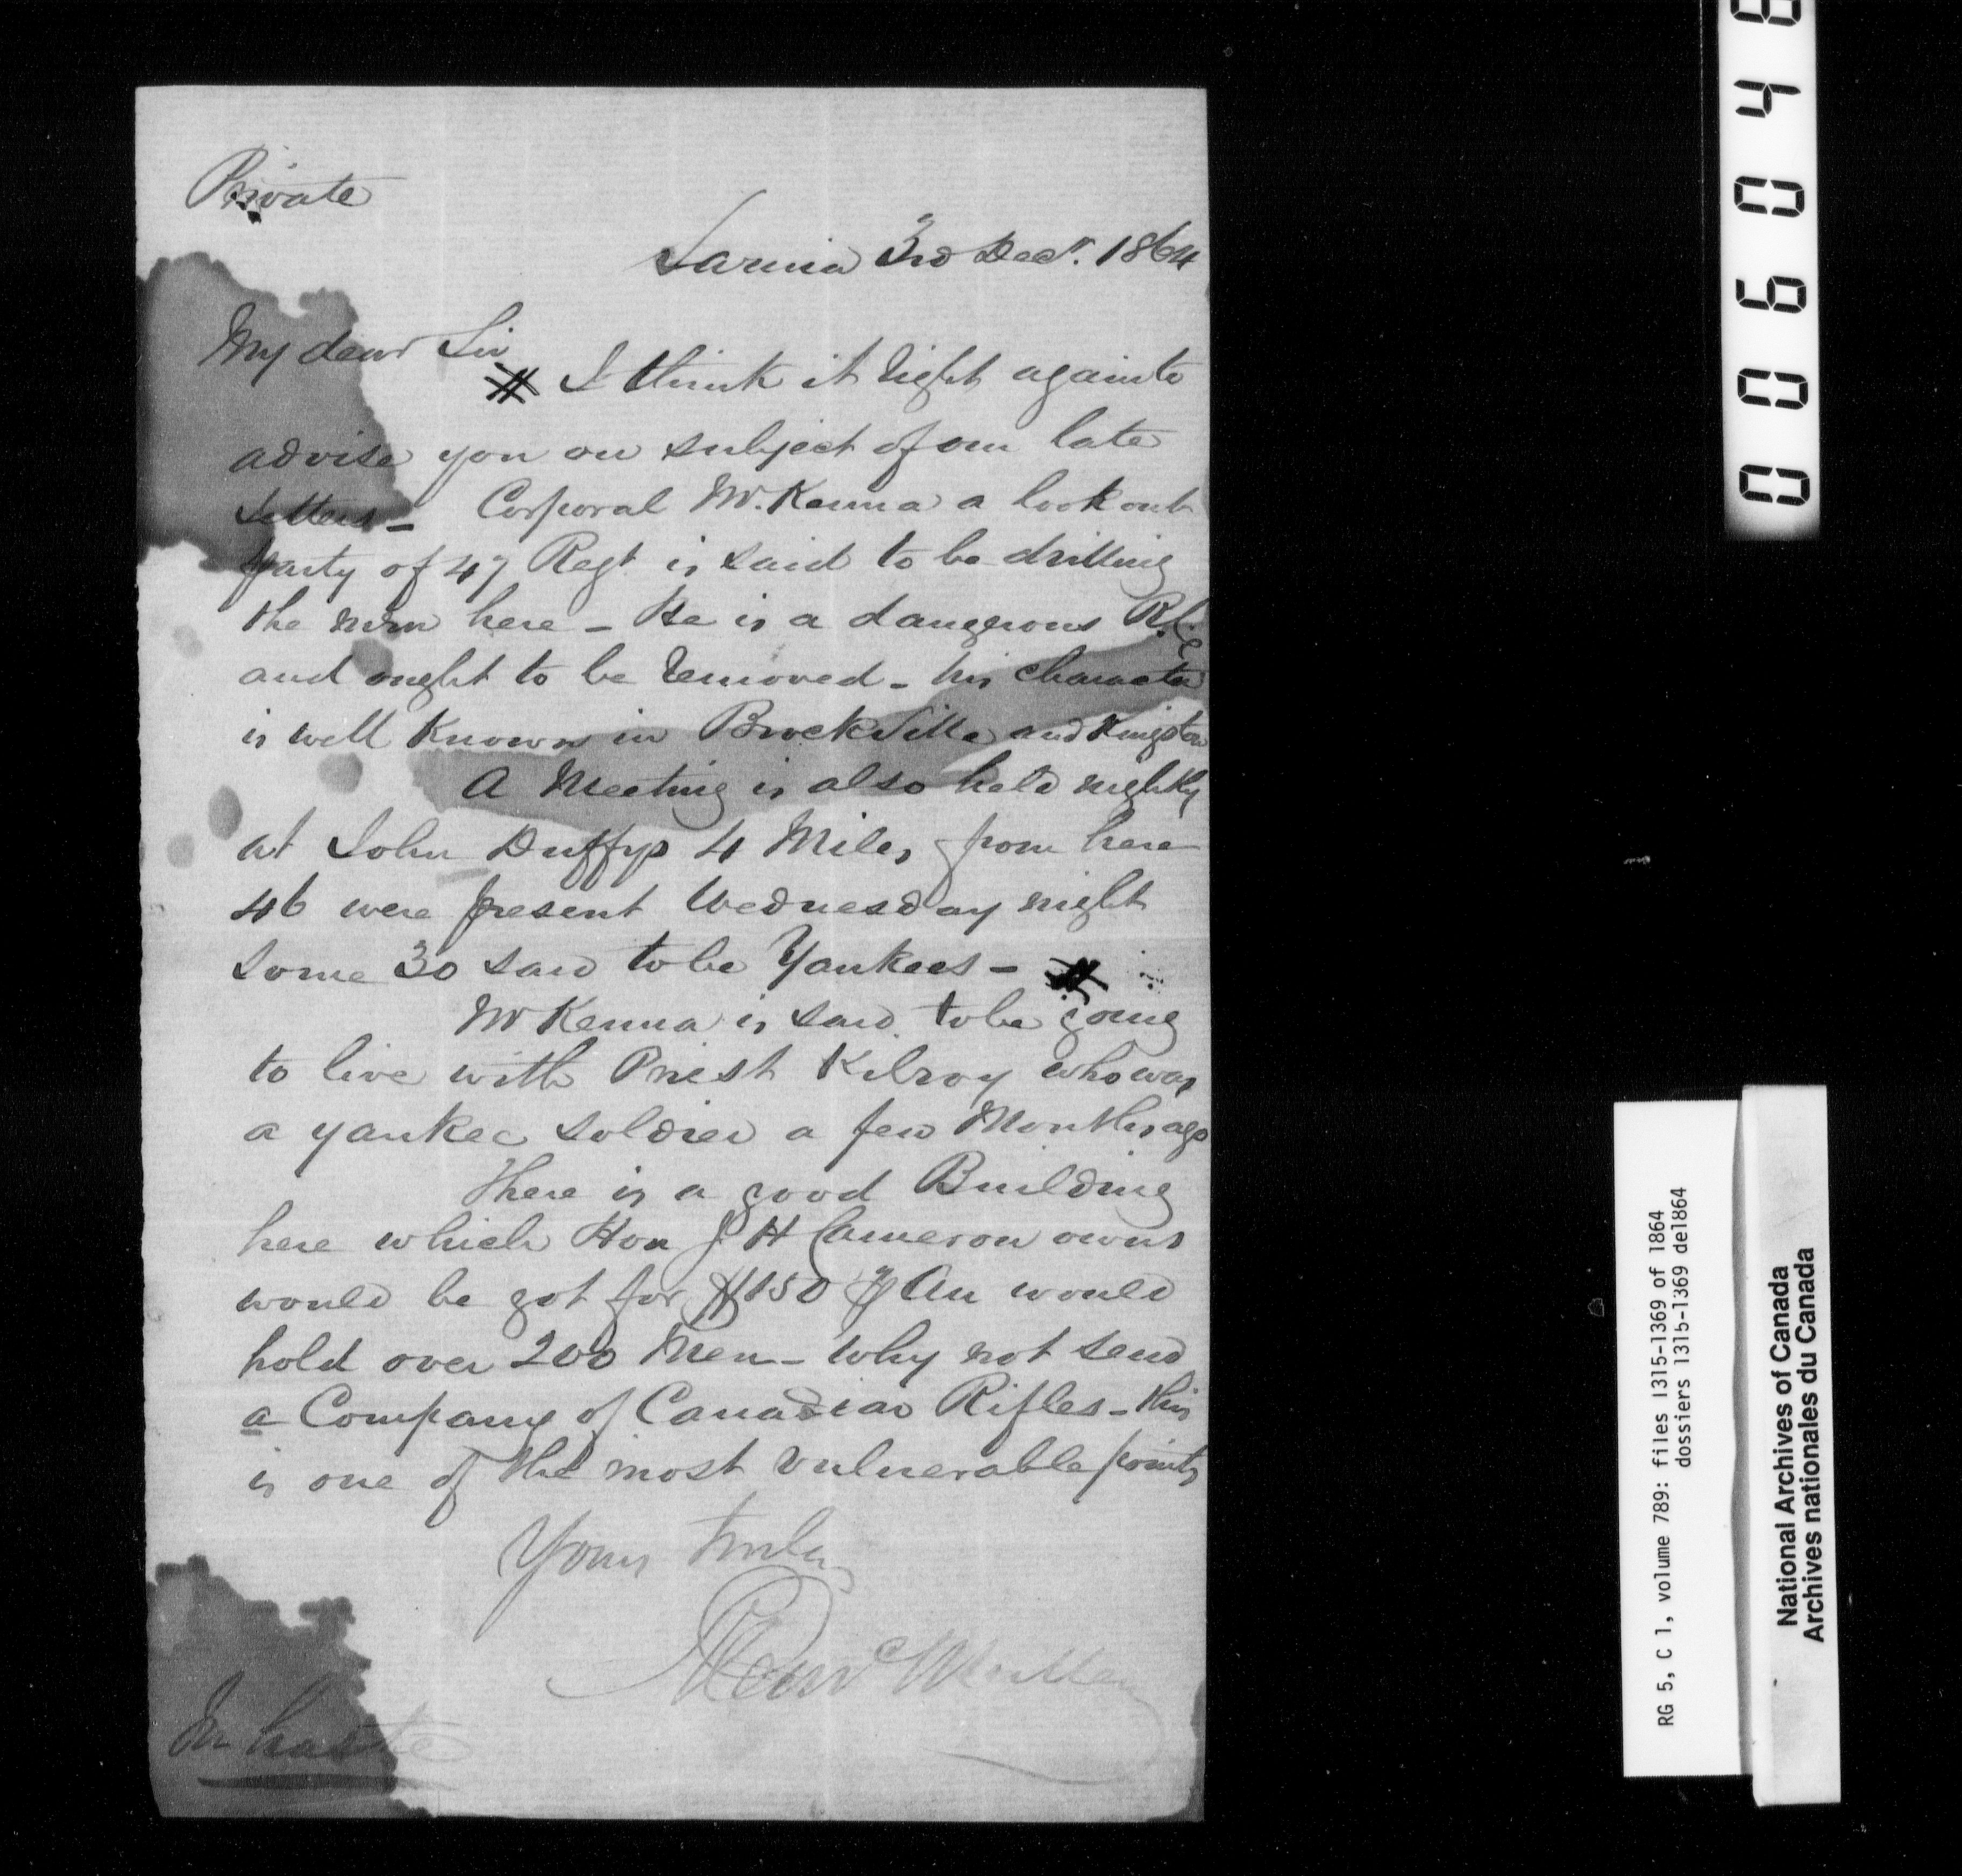 Private
Sarnia 3rd Decr. 1864
My dear Sir
# I think it right again to
advise you on subject of our late
letters - Corporal McKenna a look out
party of 47 Regt. is said to be drilling
the men here - He is a dangerous R.C.
and ought to be removed - his character
is well known in Brockville and Kingston
A Meeting is also held nightly
at John Duffys 4 Miles from here
46 were present Wednesday night
some 30 said to be Yankees - #
McKenna is said to be going
to live with Priest Kilroy who was
a yankee soldier a few Months ago
There is a good Building
here which Hon J H Cameron owns
would be got for $150 p An would
hold over 200 Men - Why not send
a Company of Canadian Rifles - this
is one of the most vulnerable points
Yours truly
In haste
006048
RG 5, C 1, volume 789: files 1315-1369 of 1864
dossiers 1315-1369 de1864
National Archives of Canada
Archives nationales du Canada